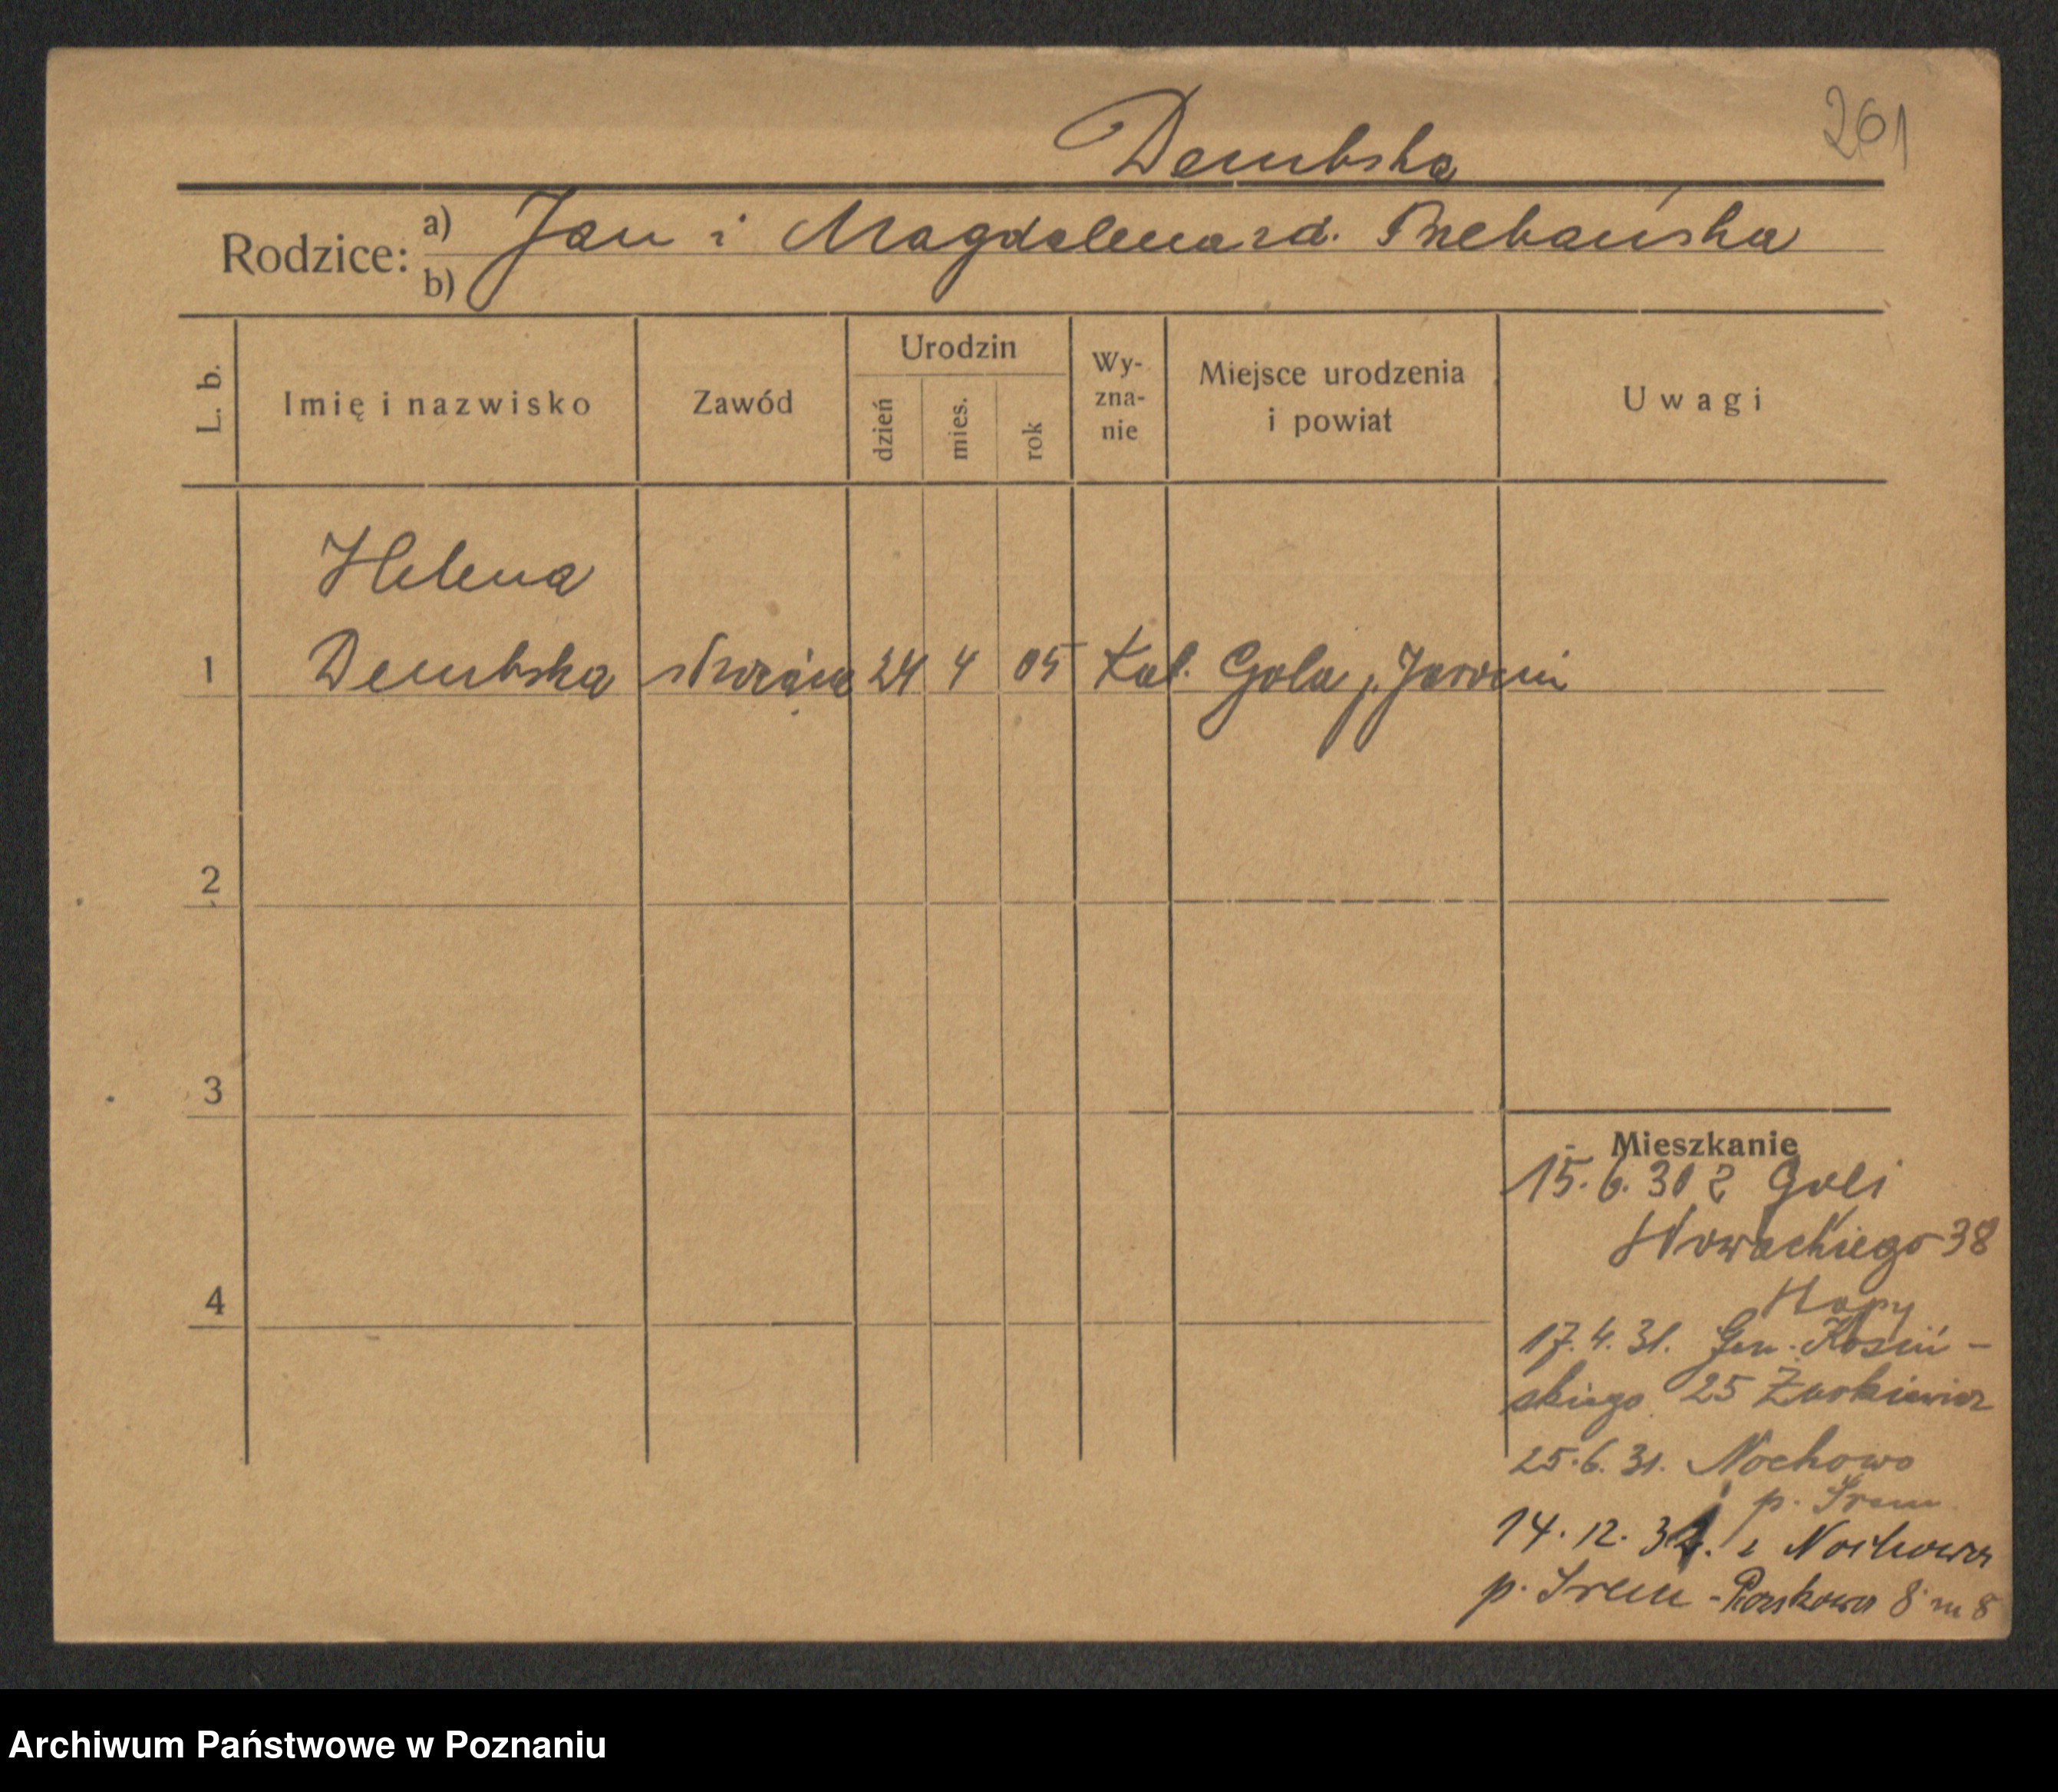 261
Dembska
Rodzice: a) Jan i Magdalena zd. Przebańska
b)
L. b. Imię i nazwisko Zawód Urodzin dzień mies. rok Wy-zna-nie Miejsce urodzenia i powiat Uwagi
Helena
1 Dembska 24 4 05 Kat. Gola p. Jarocin
2
3
Mieszkanie
15. 6. 30 z Goli
Nowackiego 38
4
17. 4. 31. Gen. Kosiń-
skiego 25 Żurkiewicz
25. 6. 31. Nochowo
p. Śrem
14. 12. z Nochowa
p. Śrem - 8 m 8
Archiwum Państwowe w Poznaniu